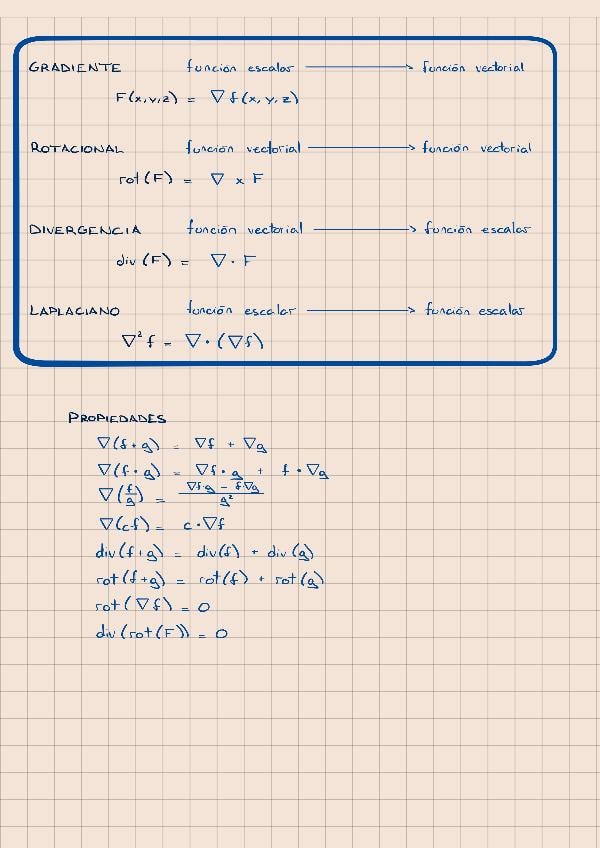 GRADIENTE función escalar → función vectorial
F(x,y,z) = ∇f(x,y,z)
ROTACIONAL función vectorial → función vectorial
rot(F) = ∇ x F
DIVERGENCIA función vectorial → función escalar
div(F) = ∇ · F
LAPLACIANO función escalar → función escalar
∇²f = ∇ · (∇f)
PROPIEDADES
∇(f+g) = ∇f + ∇g
∇(f·g) = ∇f·g + f·∇g
∇(f/g) = (∇f·g - f·∇g)/g²
∇(cf) = c·∇f
div(f+g) = div(f) + div(g)
rot(f+g) = rot(f) + rot(g)
rot(∇f) = 0
div(rot(F)) = 0